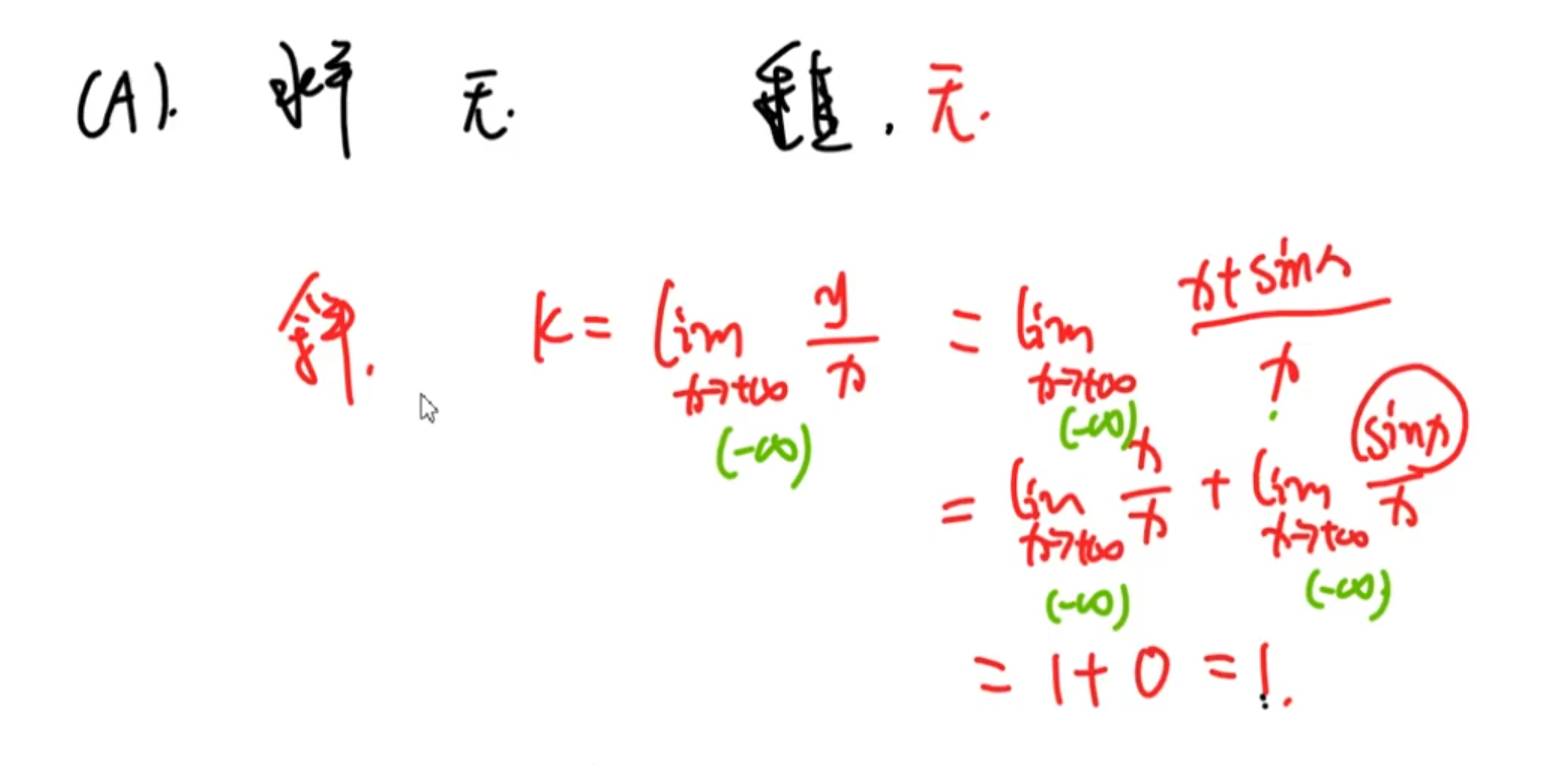 (A). 水平 无. 垂直. 无.
斜. K = lim_{x→+∞ (-∞)} y/x = lim_{x→+∞ (-∞)} (x+sinx)/x
= lim_{x→+∞ (-∞)} x/x + lim_{x→+∞ (-∞)} sinx/x
= 1+0 = 1.